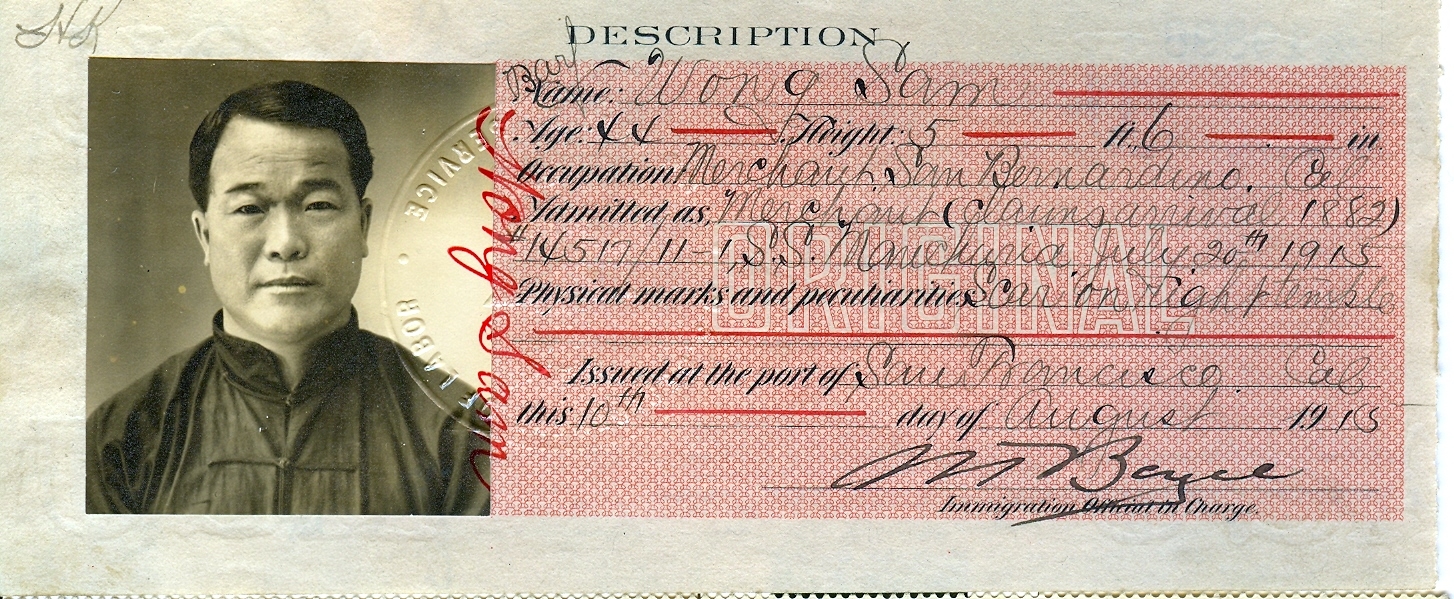 HK
DESCRIPTION
Name: Wong Sam
Age: 44 Height: 5 ft. 6 in
Occupation Merchant. San Bernardino. Cal
Admitted as, Merchant (claims arrival 1882)
#14517/11-1, S.S. Manchuria. July 20th 1915
Physical marks and peculiarities Scar on right temple
ORIGINAL
Issued at the port of San Francisco. Cal
this 10th day of August 1915
Immigration Official in Charge.
Wong Sam
SERVICE · LABOR